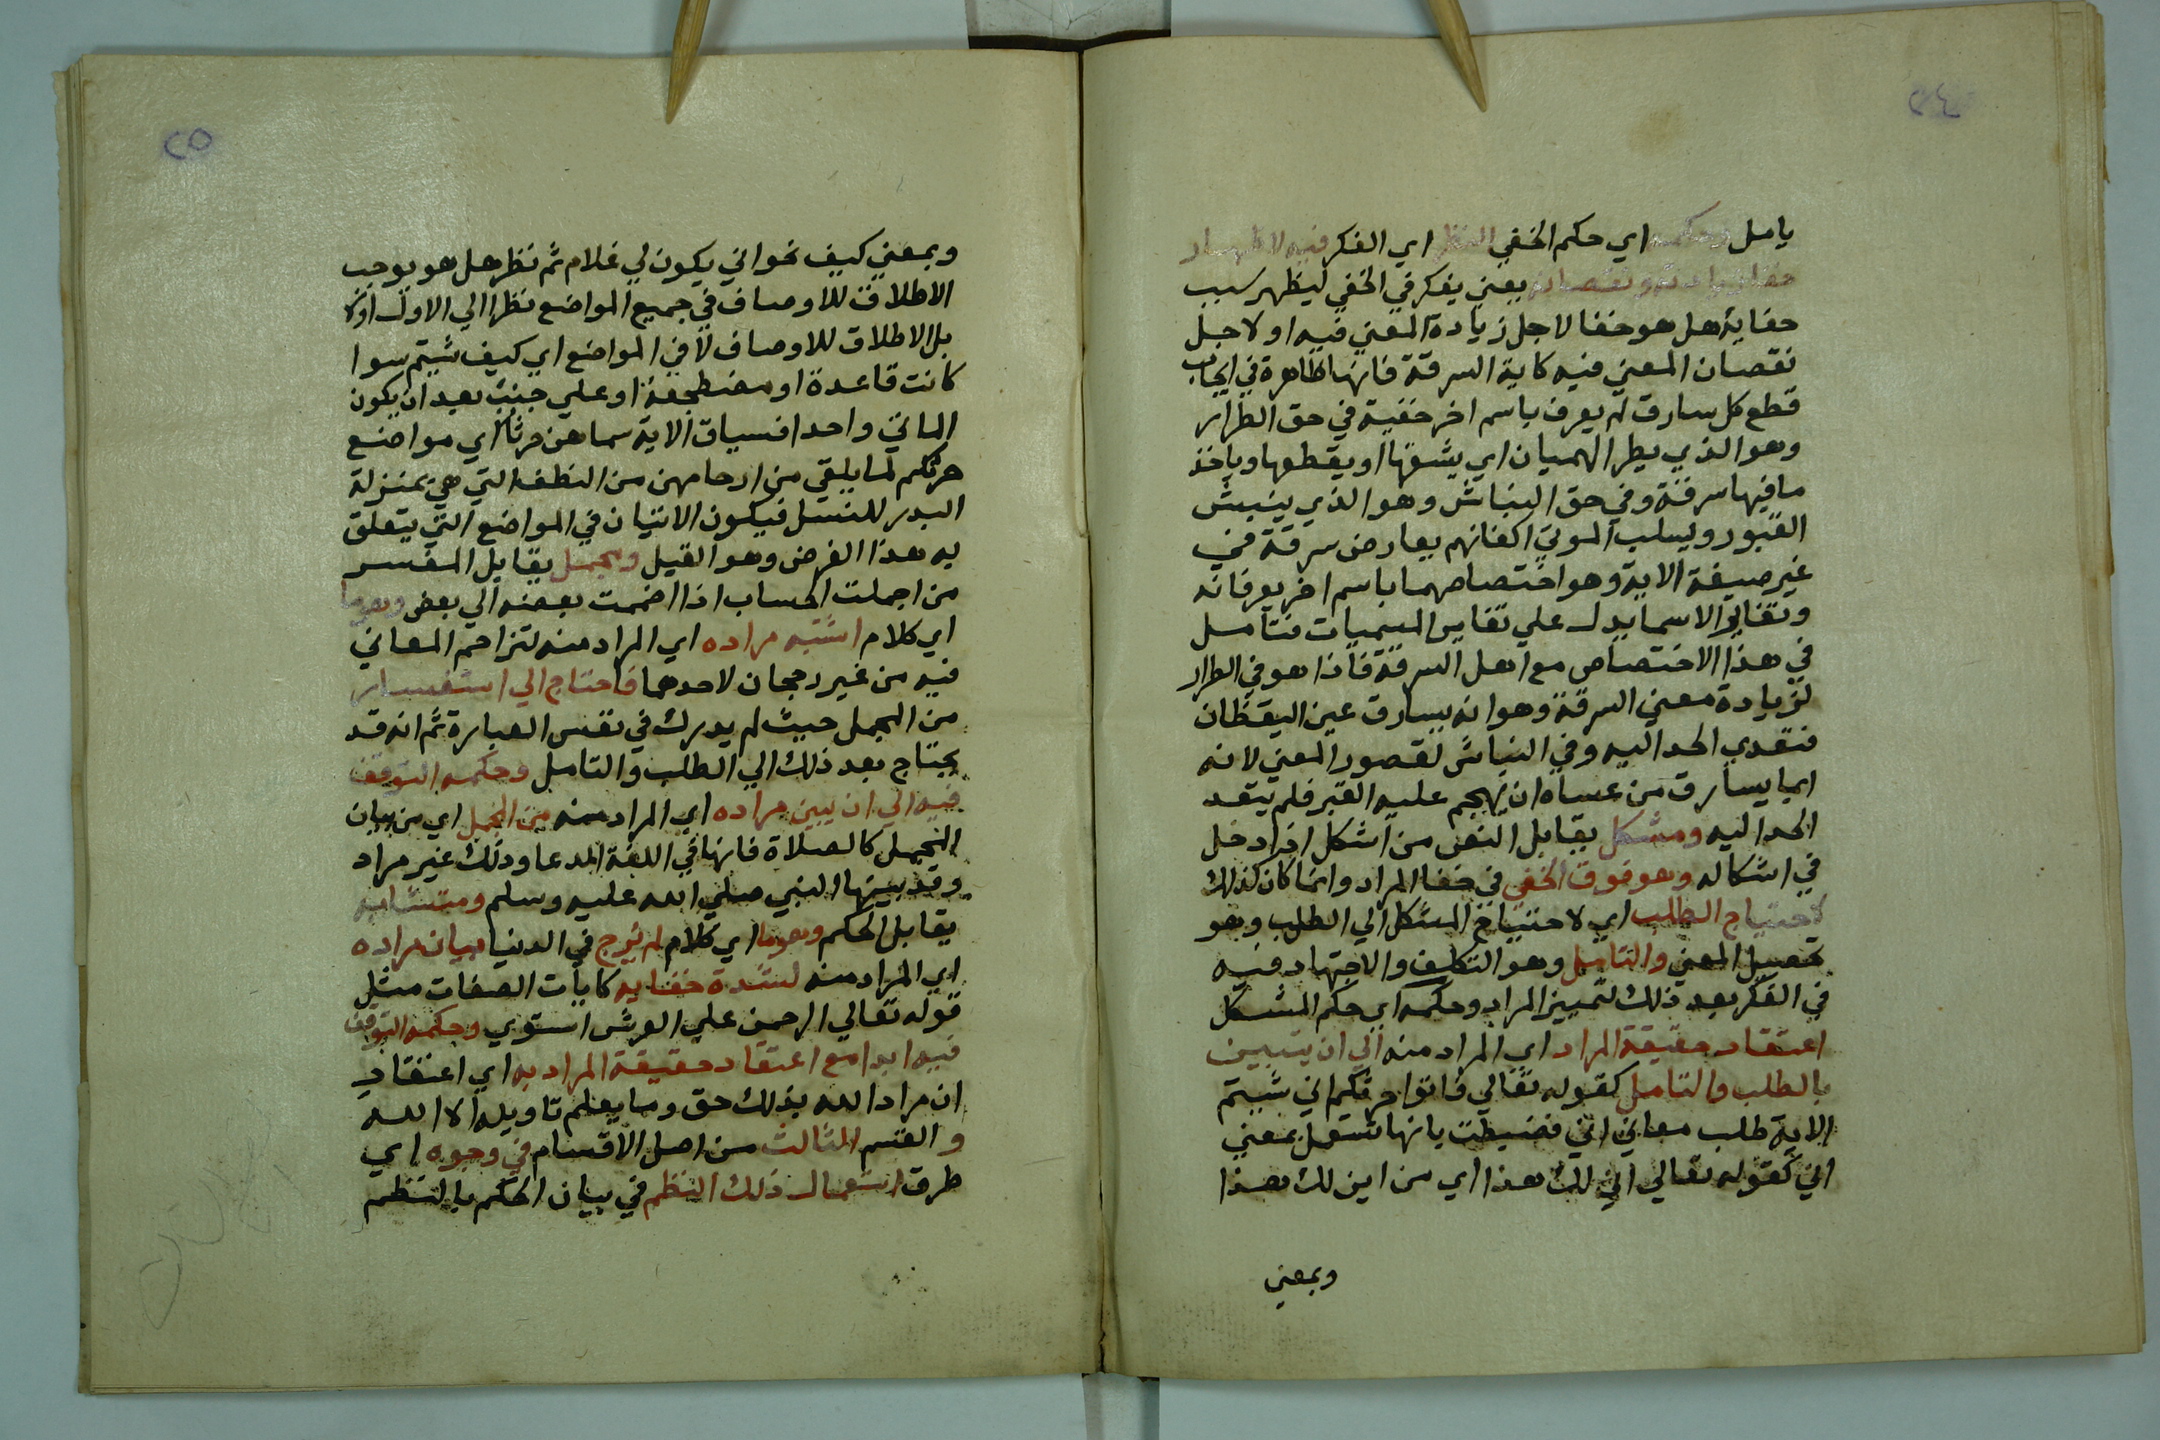 ٢٤
يامل وحكمه اي حكم الخفي النظر اي الفكر فيه لاظهار
خفائه زيادته ونقصانه يعني يفكر في الخفي ليظهر سبب
خفايه هل هو خفا لاجل زيادة المعني فيه او لاجل
نقصان المعني فيه كاية السرقة فانها ظاهرة في ايجاب
قطع كل سارق لم يعرف باسم اخر خفية في حق الطرار
وهو الذي يطر الهميان اي يشقها او يقطعها وياخذ
ما فيها سرقة وفي حق النباش وهو الذي ينبش
القبور ويسلب الموتي اكفانهم بعارض سرقة في
غير صيغة الاية وهو اختصاصهما باسم اخر يعرفانه
وتغاير الاسما يدل علي تغاير المسميات فتامل
في هذا الاختصاص مع اهل السرقة فاذا هو في الطرار
لزيادة معني السرقة وهو انه يسارق عين اليقظان
فتعدي الحد اليه وفي النباش لقصور المعني لانه
انما يسارق من عساه ان يهجم عليه القبر فلم يتعد
الحد اليه ومشكل يقابل النص من اشكل اذا دخل
في اشكاله وهو فوق الخفي في خفا المراد وانما كان كذلك
لاحتياج الطلب اي لاحتياج المشكل الي الطلب وهو
تحصيل المعني والتامل وهو التكلف والاجتهاد فيه
في الفكر بعد ذلك لتمييز المراد وحكمه اي حكم المشكل
اعتقاد حقيقة المراد اي المراد منه الي ان يتبين
بالطلب والتامل كقوله تعالي فاتوا حرثكم اني شيتم
الاية طلب معاني اني فضبطت بانها تستعمل بمعني
اني كقوله تعالي اني لك هذا اي من اين لك هذا
وبمعني
٢٥
وبمعني كيف نحو اني يكون لي غلام ثم نظر هل هو يوجب
الاطلاق للاوصاف في جميع المواضع نظرا الي الاول او لا
بل الاطلاق للاوصاف لا في المواضع اي كيف شيتم سوا
كانت قاعدة او مضطجعة او علي جنب بعد ان يكون
الماتي واحدا فسياق الاية سماهن حرثا اي مواضع
حرثكم لما يلقي من ارحامهن من النطفة التي هي بمنزلة
البدر للنسل فيكون الاتيان في المواضع التي يتعلق
به هذا الغرض وهو القبل ومجمل يقابل المفسر
من اجملت الحساب اذا ضممت بعضه الي بعض وهو ما
اي كلام اشتبه مراده اي المراد منه لتزاحم المعاني
فيه من غير رجحان لاحدها فاحتاج الي استفسار
من المجمل حيث لم يدرك في نفس العبارة ثم انه قد
يحتاج بعد ذلك الي الطلب والتامل وحكمه التوقف
فيه الي ان يبين مراده اي المراد منه من المجمل اي من بيان
المجمل كالصلاة فانها في اللغة المدعا وذلك غير مراد
وقد بينها النبي صلي الله عليه وسلم ومتشابه
يقابل المحكم وهو ما اي كلام لم يرج في الدنيا بيان مراده
اي المراد منه لشدة خفايه كايات الصفات مثل
قوله تعالي الرحمن علي العرش استوي وحكمه التوقف
فيه ابدا مع اعتقاد حقيقة المراد به اي اعتقاد
ان مراد الله بذلك حق وما يعلم تاويله الا الله
والقسم الثالث من اصل الاقسام في وجوه اي
طرق استعمال ذلك النظم في بيان الحكم بالنظم